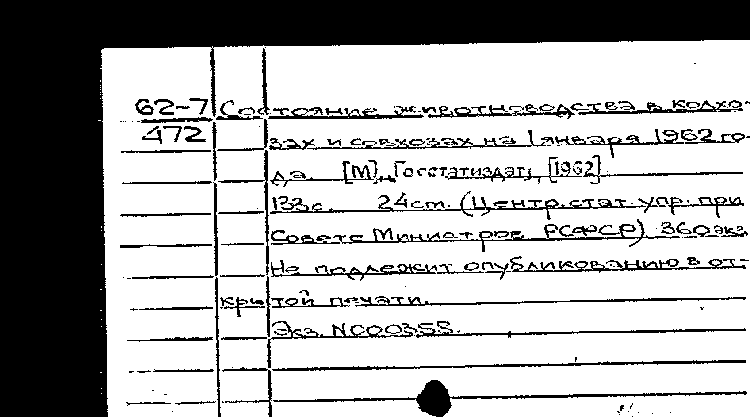 62-7 Состояние животноводства в колхо-
472 зах и совхозах на 1 января 1962 го-
да. [М], Госстатиздат, [1962]
133 с. 24 см. (Центр. стат. упр. при
Совете Министров РСФСР) 360 экз.
Не подлежит опубликованию в от-
крытой печати.
Экз. N000355.